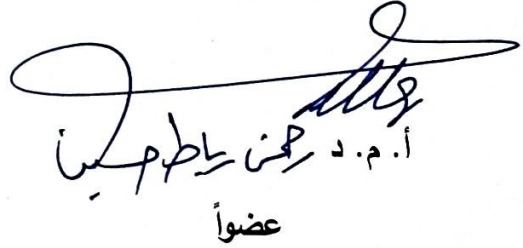 أ. م. د رحمن رباط حسين
عضواً